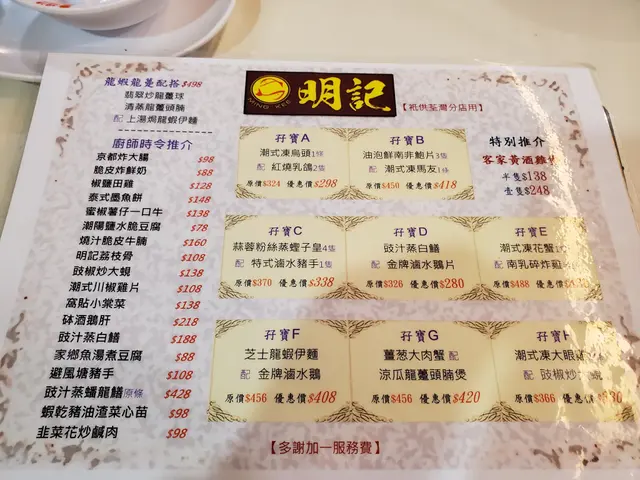 龍蝦龍躉配搭 $498
翡翠炒龍躉球
清蒸龍躉頭腩
配 上湯焗龍蝦伊麵
廚師時令推介
京都炸大腸 $98
脆皮炸鮮奶 $88
椒鹽田雞 $128
泰式墨魚餅 $148
蜜椒薯仔一口牛 $138
潮陽鹽水脆豆腐 $78
燒汁脆皮牛腩 $160
明記荔枝骨 $108
豉椒炒大蜆 $138
潮式川椒雞片 $108
窩貼小棠菜 $138
砵酒鵝肝 $218
豉汁蒸白鱔 $188
家鄉魚湯煮豆腐 $88
避風塘豬手 $108
豉汁蒸蟠龍鱔 原條 $428
蝦乾豬油渣菜心苗 $98
韭菜花炒鹹肉 $98
MING KEE
明記
【祇供荃灣分店用】
孖寶A
潮式凍烏頭1條
配 紅燒乳鴿2隻
原價$324 優惠價$298
孖寶B
油泡鮮南非鮑片3隻
配 潮式凍馬友1條
原價$450 優惠價$418
特別推介
客家黃酒雞
半隻$138
壹隻$248
孖寶C
蒜蓉粉絲蒸蟶子皇4隻
配 特式滷水豬手1隻
原價$370 優惠價$338
孖寶D
豉汁蒸白鱔
配 金牌滷水鵝片
原價$326 優惠價$280
孖寶E
潮式凍花蟹
配 南乳碎炸
原價$488 優惠價
孖寶F
芝士龍蝦伊麵
配 金牌滷水鵝
原價$456 優惠價$408
孖寶G
薑葱大肉蟹 配
涼瓜龍躉頭腩煲
原價$456 優惠價$420
孖寶H
潮式凍大眼
配 豉椒炒
原價$366 優惠價
【多謝加一服務費】